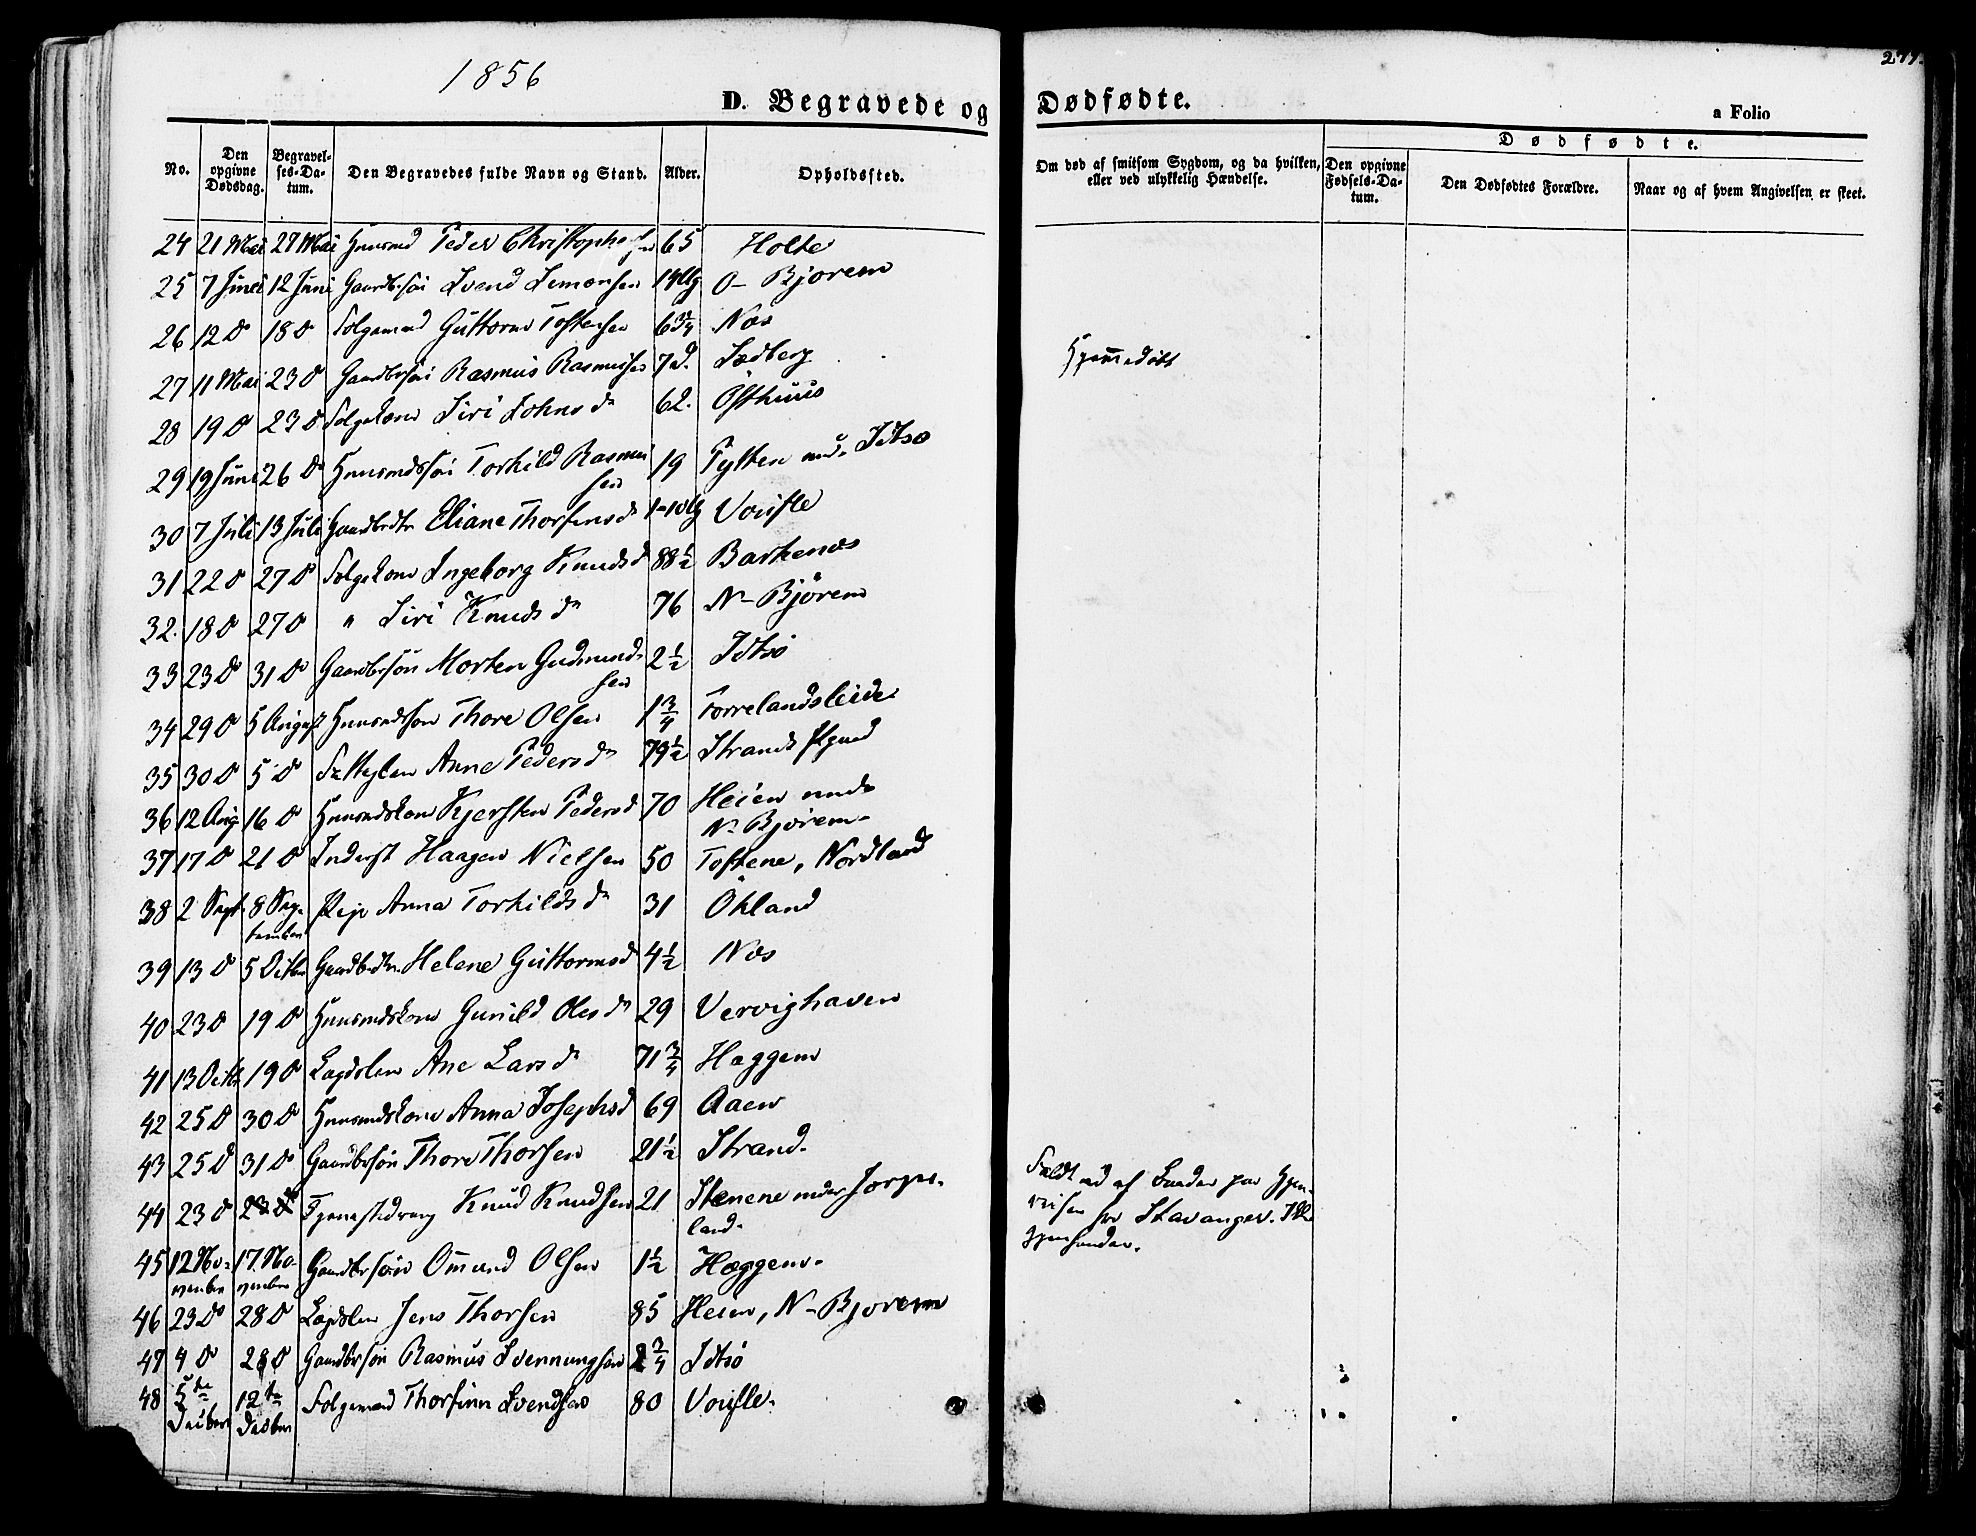 1856
277.
D. Begravede og Dødfødte.
a Folio
No. Den opgivne Dødsdag. Begravelses-Datum. Den Begravedes fulde Navn og Stand. Alder. Opholdssted.
Om død af smitsom Sygdom, og da hvilken, eller ved ulykkelig Hændelse.
Dødfødte.
Den opgivne Fødsels-Datum. Den Dødfødtes Forældre. Naar og af hvem Angivelsen er skeet.
24 21 Mai 27 Mai Huusmd Peder Christophersen 65 Holte
25 7 Juni 12 Juni Gaardbrsøn Svend Simonsen 14 Ug O- Bjørem
26 12 D 18 D Folgemand Guttorm Tostensen 63 3/4 Næs
27 11 Mai 23 D Gaardbrsøn Rasmus Rasmussen 7 d. Sædberg Hjemmedøbt
28 19 D 23 D Folgekone Siri Johnsdr 62. Østhuus
29 19 Juni 26 D Huusmdssøn Torkild Rasmus
sen 19 Pytten und. Idtsø
30 7 Juli 13 Juli Gaardbrdtr Eliane Thorfinnsd 1-10 Ug Vousle
31 22 D 27 D Folgekone Ingeborg Knudsd 88 1/2 Barkenæs
32. 18 D 27 D " Siri Knudsdr 76 N- Bjørem
33 23 D 31 D Gaardbrsøn Morten Gudmund-
sen 2 1/2 Idtsø
34 29 D 5 August Huusmdssøn Thore Olsen 1 3/4 Torrelandsleide
35 30 D 5 D Anne Pedersdr 79 1/2 Strands Pgjeld
36 12 Aug 16 D Huusmdskone Kjersten Pedersd 70 Heien under
N- Bjørem-
37 17 D 21 D Inderst Haagen Nielsen 50 Toftene, Nordland
38 2 Sept. 8 Sep-
tember Pige Anna Torkildsdr 31 Økland
39 13 D 5 Octbr Gaardbrdtr. Helene Guttormsd 4 1/2 Næs
40 23 D 19 D Huusmdskone Gunild Olesdr 29 Vervighaven
41 13 Octb 19 D Lægdslem Ane Larsdr 71 3/4 Hæggem
42 25 D 30 D Huusmdskone Anna Josephsd 69 Aaen
43 25 D 31 D Gaardbrsøn Thore Thorsen 21 1/2 Strand.
44 23 D 23 D Tjenestedreng Knud Knudsen 21 Stenene under Jorpe-
land.
Faldt ud af Baaden paa Hjem-
reisen fra Stavanger. Ikke
gjenfunden.
45 12 No-
vember 17 No-
vember Gaardbrsøn Ommund Olsen 1 1/2 Hæggem.
46 23 D 28 D Lægdslem Jens Thorsen 85 Heien, N- Bjørem
47 4 D 28 D Gaardbrsøn Rasmus Svennungsen 2 3/4 Idtsø
48 5te
Decbr 12te
Decbr Folgemand Thorfinn Svendsen 80 Vousle.